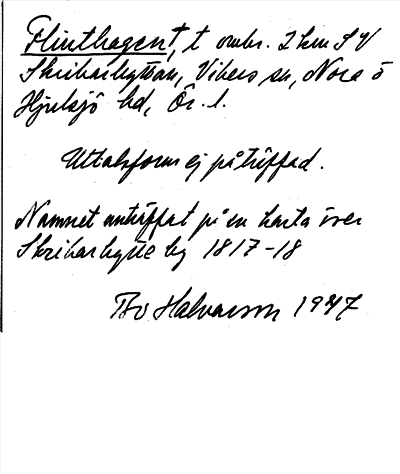 Flinthagen†, t omr. 2 km SV
Skribarhyttan, Vikers sn, Nora o
Hjulsjö hd, Ör. l.
Uttalsform ej påträffad.
Namnet anträffat på en karta över
Skribarhytte by 1817-18
Bo Halvarson 1947